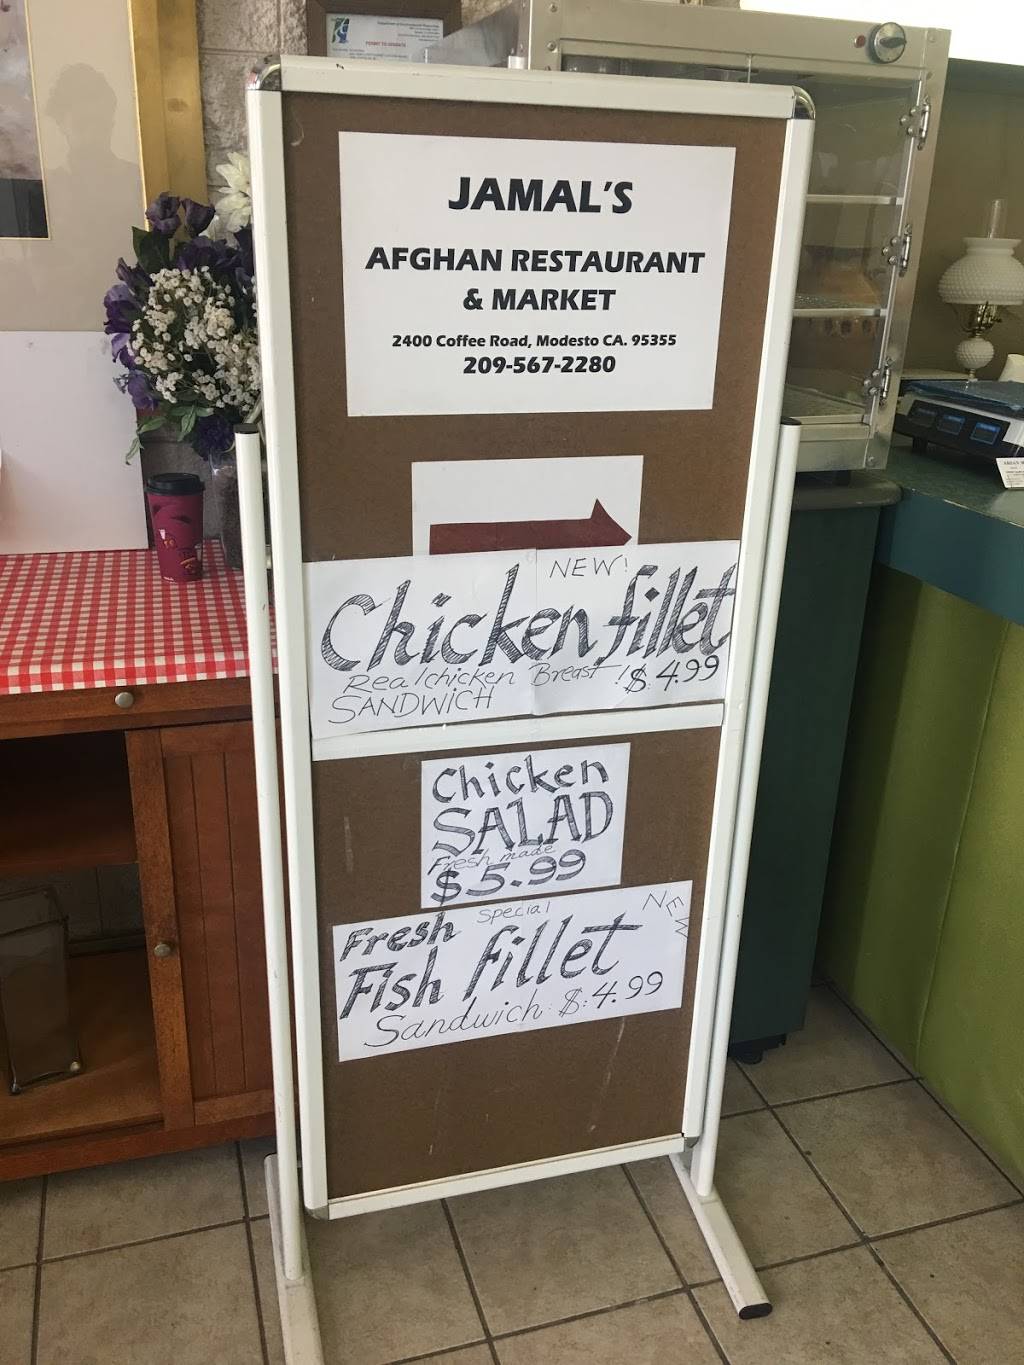 PERMIT TO OPERATE
JAMAL'S
AFGHAN RESTAURANT
& MARKET
2400 Coffee Road, Modesto CA. 95355
209-567-2280
NEW!
Chicken fillet
Real chicken Breast ! $ 4.99
SANDWICH
Chicken
SALAD
Fresh made
$5.99
Special
NEW
Fresh
Fish fillet
Sandwich: $:4.99